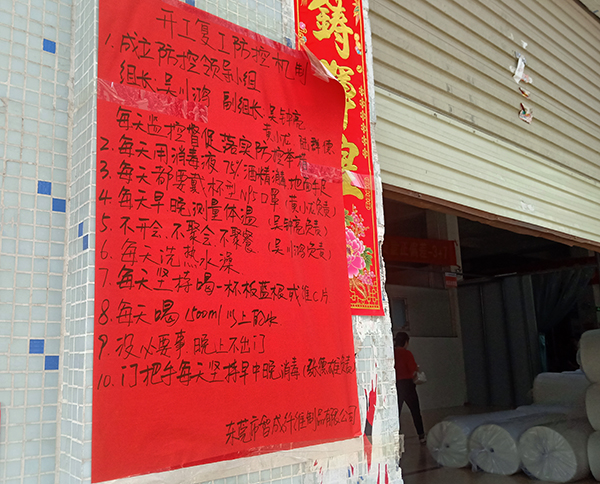 开工复工防控机制
1. 成立防控领导小组
组长: 吴川鸿 副组长: 吴钟亮
每天监控督促落实防控举措
2. 每天用消毒液 75%酒精
3. 每天都要戴杯型N95口罩
4. 每天早晚测量体温 (吴钟亮负责)
5. 不开会、不聚会不聚餐 (吴川鸿负责)
6. 每天洗热水澡
7. 每天坚持喝一杯板蓝根或维C片
8. 每天喝1500ml以上的水
9. 没必要事, 晚上不出门
10. 门把手每天坚持早中晚消毒
东莞市智成纤维制品有限公司
鑄輝皇